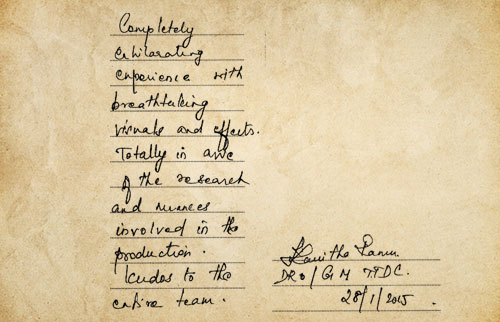 Completely
exhilarating
experience with
breathtaking
visuals and effects.
Totally in awe
of the research
and nuances
involved in the
production.
Kudos to the
entire team.
DRO/GM TTDC.
28/1/2015